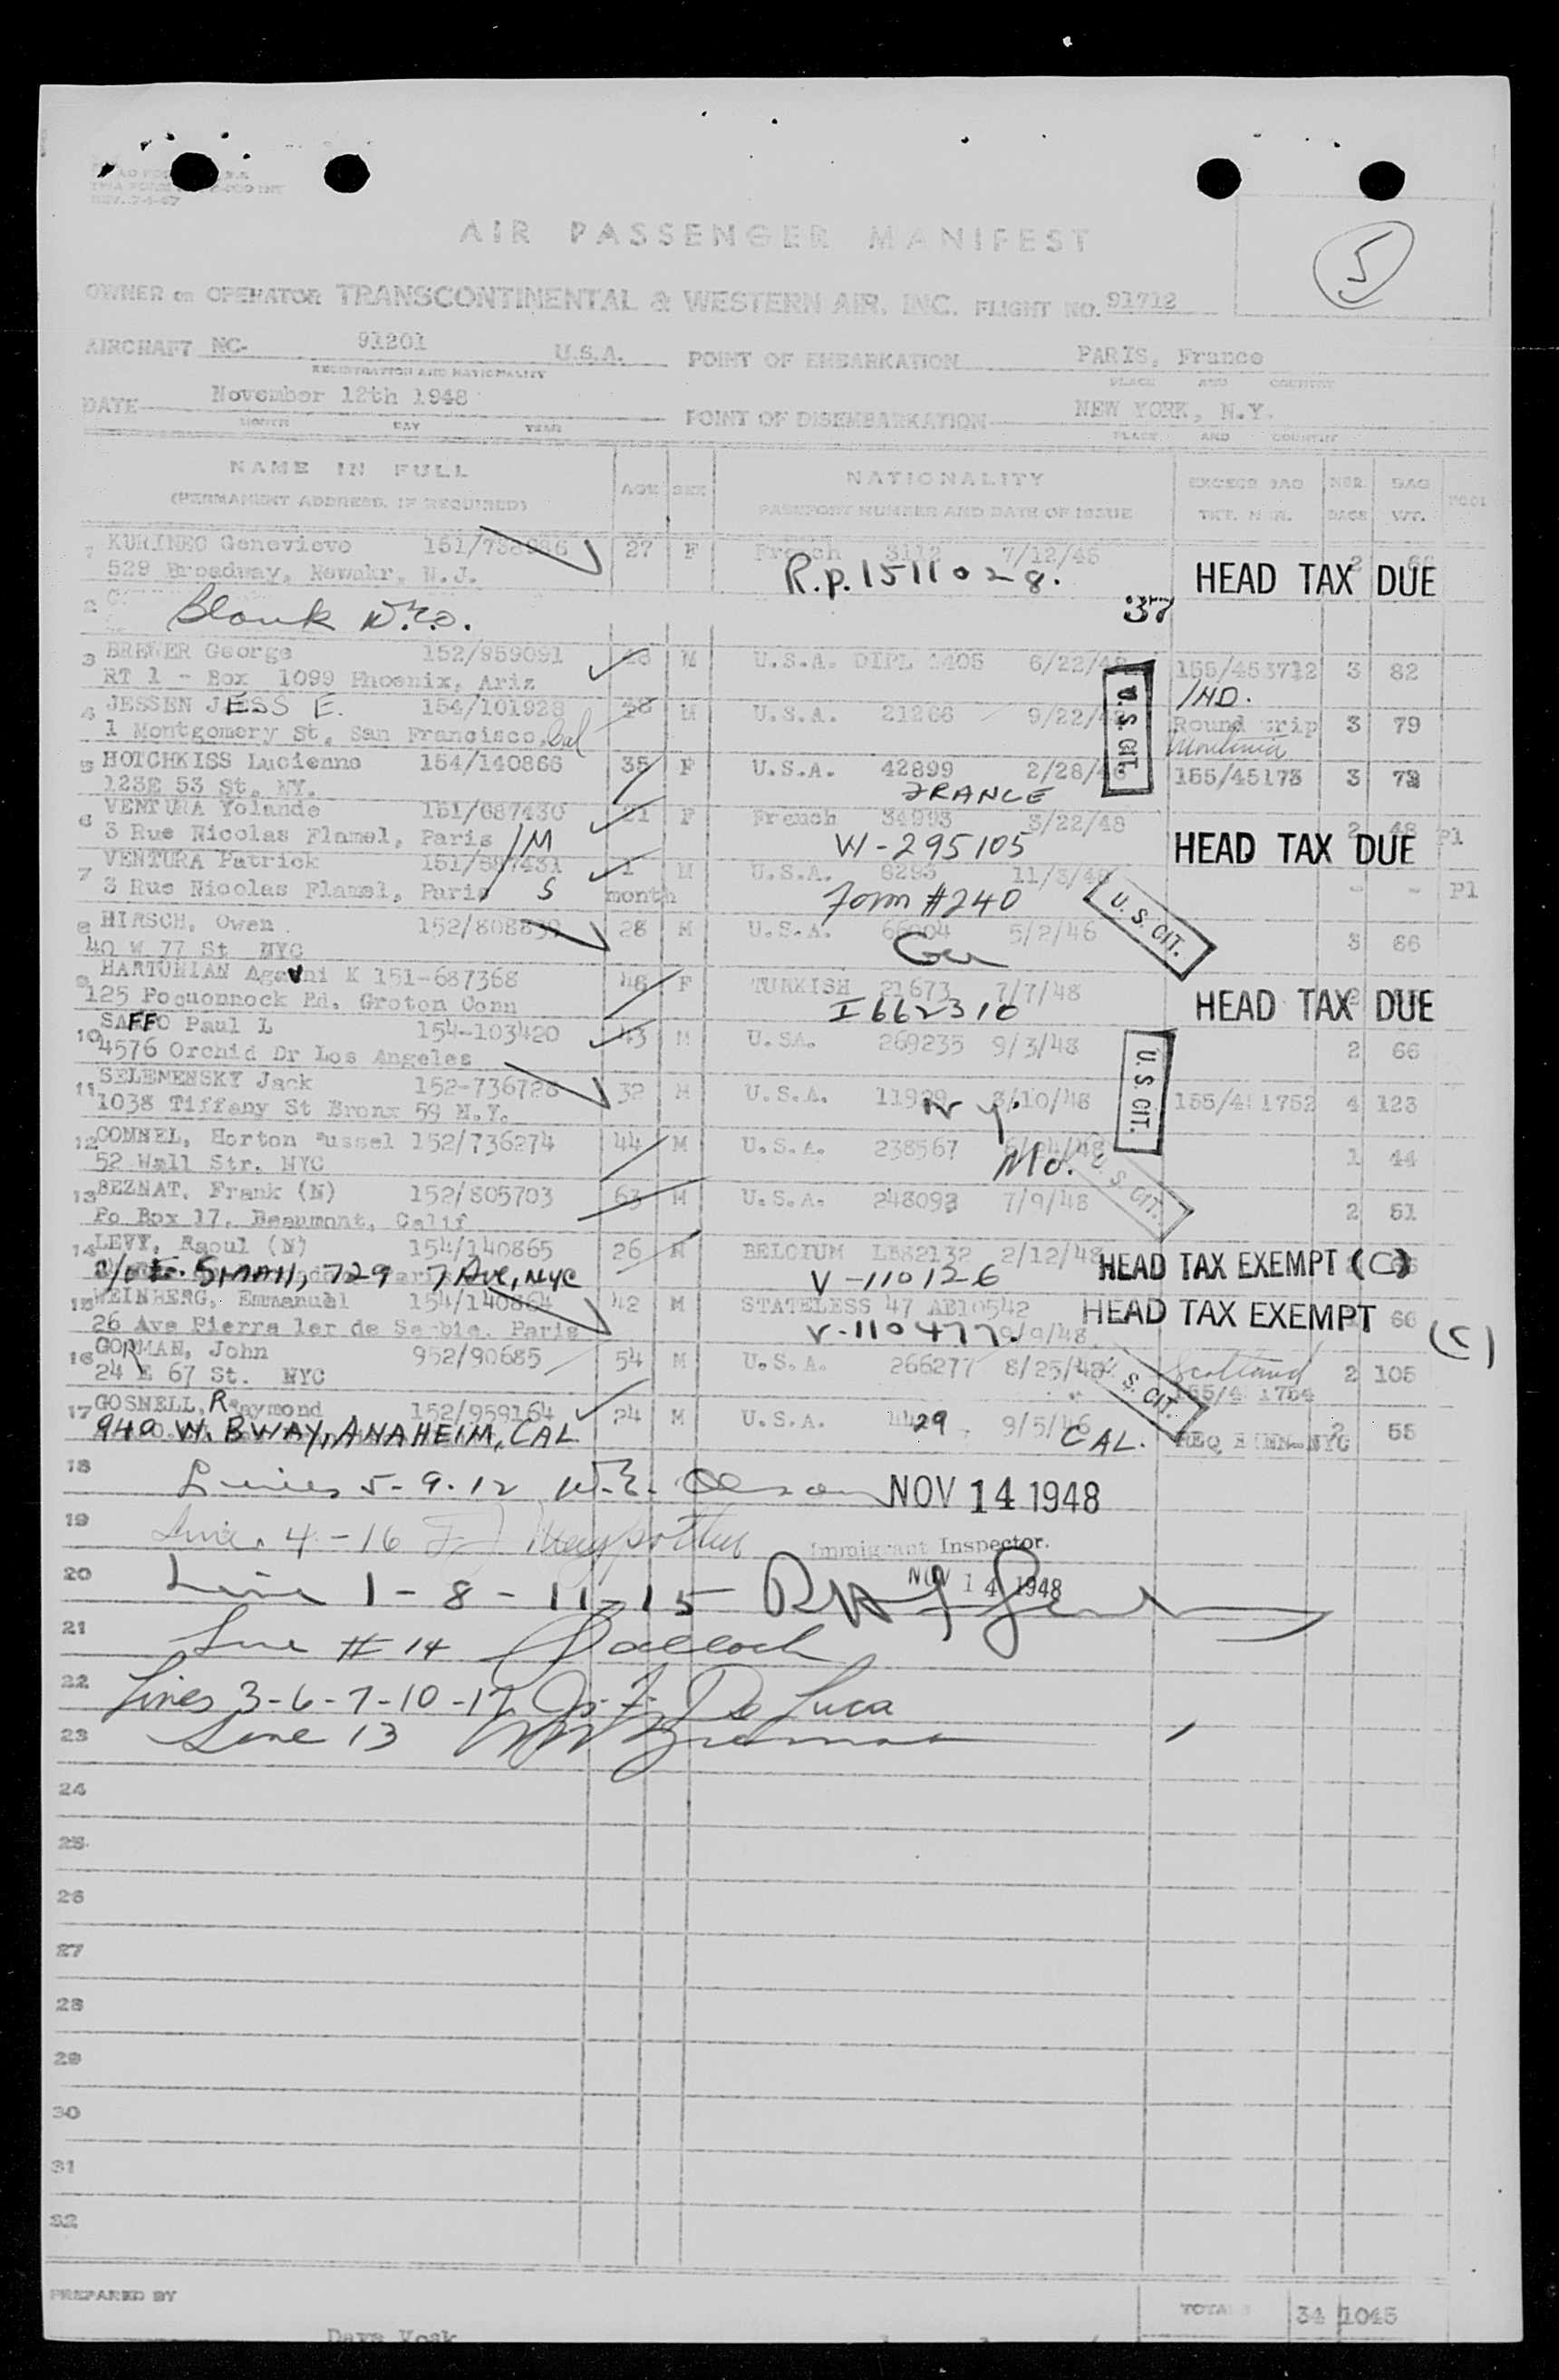 REV. 7-1-47
AIR PASSENGER MANIFEST
5
OWNER OR OPERATOR TRANSCONTINENTAL & WESTERN AIR, INC. FLIGHT NO. 91712
AIRCRAFT NC- 91201 U.S.A. POINT OF EMBARKATION PARIS, France
REGISTRATION AND NATIONALITY PLACE AND COUNTRY
DATE November 12th 1948 POINT OF DISEMBARKATION NEW YORK, N.Y.
MONTH DAY YEAR PLACE AND COUNTRY
NAME IN FULL AGE SEX NATIONALITY EXCESS BAG NBR. BAG
(PERMANENT ADDRESS, IF REQUIRED) PASSPORT NUMBER AND DATE OF ISSUE TKT. WT.
1 KURINEC Genevieve 27 F French 3112 7/12/46 2
529 Broadway, Newakr, N.J. R.P. 1511028. HEAD TAX DUE
2 Blank
3 BREWER George 152/959091 M U.S.A. DIPL 1405 6/22/48 155/453712 3 82
RT 1 - Box 1099 Phoenix, Ariz IND.
4 JESSEN JESS E. 154/101928 M U.S.A. 21266 9/22/ Round trip 3 79
1 Montgomery St, San Francisco, Cal U.S. CIT.
5 HOTCHKISS Lucienne 154/140866 35 F U.S.A. 42899 2/28/46 155/45173 3
123E 53 St. NY. FRANCE
6 VENTURA Yolande 151/687430 21 F French 34993 3/22/48 2 48 Pl
3 Rue Nicolas Flamel, Paris M W-295105 HEAD TAX DUE
7 VENTURA Patrick 151/687431 1 M U.S.A. 6295 11/3/48 - - Pl
3 Rue Nicolas Flamel, Paris S month Form #240
8 HIRSCH, Owen 28 M U.S.A. 66904 5/2/46 U.S. CIT. 3 66
40 W 77 St NYC
9 HARTUNIAN Agavni K 151-687368 46 F TURKISH 21673 7/7/48 2
125 Poquonnock Rd. Groton Conn I662310 HEAD TAX DUE
10 SAFFO Paul L 154-103420 43 M U.SA. 269235 9/3/48 2 66
4576 Orchid Dr Los Angeles
11 SELEMENSKY Jack 152-736728 32 M U.S.A. U.S. CIT. 4 123
1038 Tiffany St Bronx 59 N.Y. N.Y.
12 CONNEL, Horton Russel 152/736274 44 M U.S.A. 238567 1 44
52 Wall Str. NYC Mo. U.S. CIT.
13 BEZNAT, Frank (N) 152/805703 63 M U.S.A. 248093 7/9/48 2 51
Po Box 17, Beaumont, Calif
14 LEVY, Raoul (N) 154/140865 26 M BELGIUM 2/12/48 HEAD TAX EXEMPT (C)
SMALL, 729 7 AVE, NYC V-110126
15 WEINBERG, Emmanuel 154/140864 42 M STATELESS 47 AB10542 HEAD TAX EXEMPT 66
26 Ave Pierre 1er de Serbie. Paris V-110477. 9/9/48 (C)
16 GORMAN, John 952/90685 54 M U.S.A. 266277 8/25/48 Scotland 2 105
24 E 67 St. NYC U.S. CIT.
17 GOSNELL, Raymond 152/959164 24 M U.S.A. 29 9/5/46 2 55
940 W. BWAY, ANAHEIM, CAL CAL. REQ NYC
18 Lines 5-9-12 W.E. Olson NOV 14 1948
19 Line. 4-16
Immigrant Inspector.
20 Line 1-8-11-15 NOV 14 1948
21 Line #14
22 Lines 3-6-7-10-17 De Luca
23 Line 13
24
25
26
27
28
29
30
31
32
PREPARED BY TOTALS 34 1045
Dave Vosk